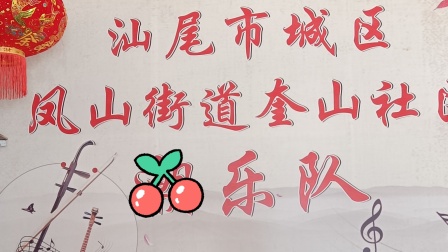 汕尾市城区
凤山街道奎山社
乐队